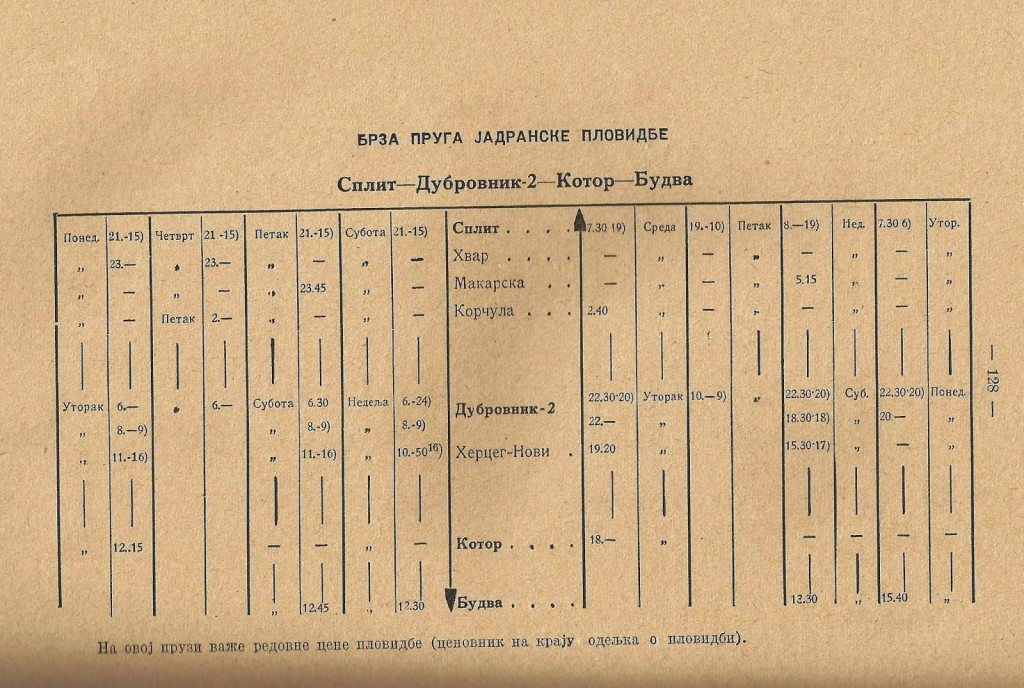 БРЗА ПРУГА ЈАДРАНСКЕ ПЛОВИДБЕ
Сплит—Дубровник-2—Котор—Будва
Понед. 21.-15) Четврт 21 -15) Петак 21.-15) Субота 21.-15) Сплит . . . . 7.30 19) Среда 19.-10) Петак 8.—19) Нед. 7.30 6) Утор.
„ 23.— „ 23.— „ — „ — Хвар . . . . — „ — „ — „ — „
„ — „ — „ 23.45 „ — Макарска . . — „ — „ 5.15 „ — „
„ — Петак 2.— „ — „ — Корчула . . . 2.40 „ — „ — „ — „
Уторак 6.— „ 6.— Субота 6.30 Недеља 6.-24) Дубровник-2 22.30·20) Уторак 10.—9) „ 22.30·20) Суб. 22.30·20) Понед.
„ 8.—9) „ 8.-9) „ 8.-9) 22.— „ 18.30·18) „ 20.— „
„ 11.-16) „ 11.-16) „ 10.-50¹⁶) Херцег-Нови . 19.20 „ 15.30·17) „ — „
„ 12.15 — — „ — Котор . . . . 18.— „ — — — —
„ 12.45 „ 12.30 Будва . . . . 13.30 „ 15.40 „
На овој прузи важе редовне цене пловидбе (ценовник на крају одељка о пловидби).
— 128 —